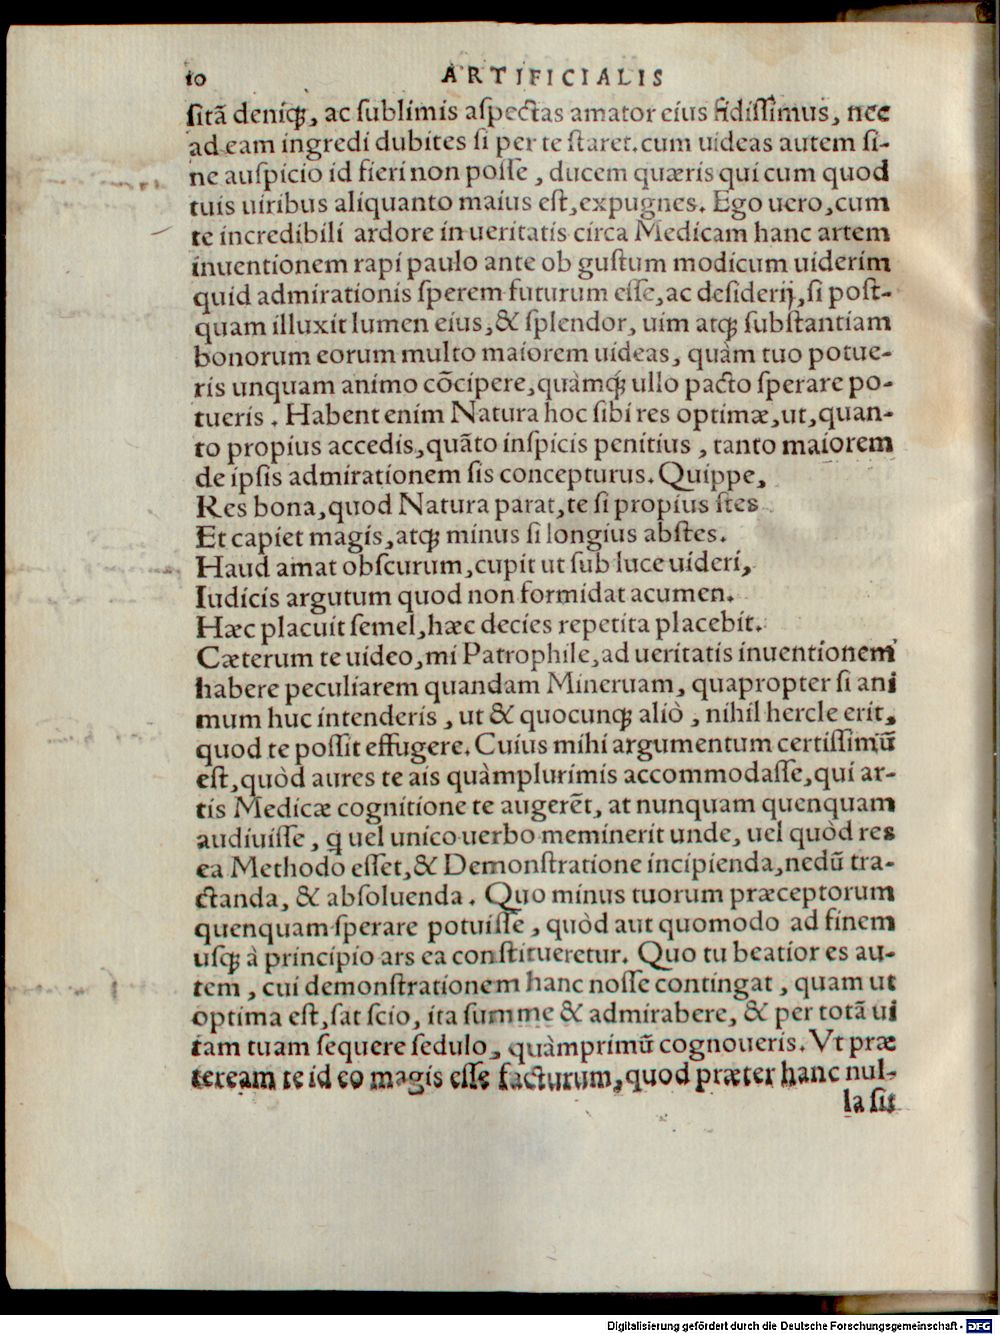 10 ARTIFICIALIS
ſitã deniqꝫ, ac ſublimis aſpectas amator eius fidiſſimus, nec
ad eam ingredi dubites ſi per te ſtaret. cum uideas autem ſi-
ne auſpicio id fieri non poſſe, ducem quæris qui cum quod
tuis uiribus aliquanto maius eſt, expugnes. Ego uero, cum
te incredibili ardore in ueritatis circa Medicam hanc artem
inuentionem rapi paulo ante ob guſtum modicum uiderim
quid admirationis ſperem futurum eſſe, ac deſiderij, ſi poſt-
quam illuxit lumen eius, & ſplendor, uim atqꝫ ſubſtantiam
bonorum eorum multo maiorem uideas, quàm tuo potue-
ris unquam animo cõcipere, quàmqꝫ ullo pacto ſperare po-
tueris. Habent enim Natura hoc ſibi res optimæ, ut, quan-
to propius accedis, quãto inſpicis penitius, tanto maiorem
de ipſis admirationem ſis concepturus. Quippe,
Res bona, quod Natura parat, te ſi propius ſtes
Et capiet magis, atqꝫ minus ſi longius abſtes.
Haud amat obſcurum, cupit ut ſub luce uideri,
Iudicis argutum quod non formidat acumen.
Hæc placuit ſemel, hæc decies repetita placebit.
Cæterum te uideo, mi Patrophile, ad ueritatis inuentionem
habere peculiarem quandam Mineruam, quapropter ſi ani
mum huc intenderis, ut & quocunqꝫ aliò, nihil hercle erit,
quod te poſſit effugere. Cuius mihi argumentum certiſſimũ
eſt, quòd aures te ais quàmplurimis accommodaſſe, qui ar-
tis Medicæ cognitione te augerẽt, at nunquam quenquam
audiuiſſe, q uel unico uerbo meminerit unde, uel quòd res
ea Methodo eſſet, & Demonſtratione incipienda, nedũ tra-
ctanda, & abſoluenda. Quo minus tuorum præceptorum
quenquam ſperare potuiſſe, quòd aut quomodo ad finem
uſqꝫ à principio ars ea conſtitueretur. Quo tu beatior es au-
tem, cui demonſtrationem hanc noſſe contingat, quam ut
optima eſt, ſat ſcio, ita ſumme & admirabere, & per totã ui
tam tuam ſequere ſedulo, quàmprimũ cognoueris. Vt præ
teream te id eo magis eſſe facturum, quod præter hanc nul-
la ſit
Digitalisierung gefördert durch die Deutsche Forschungsgemeinschaft - DFG